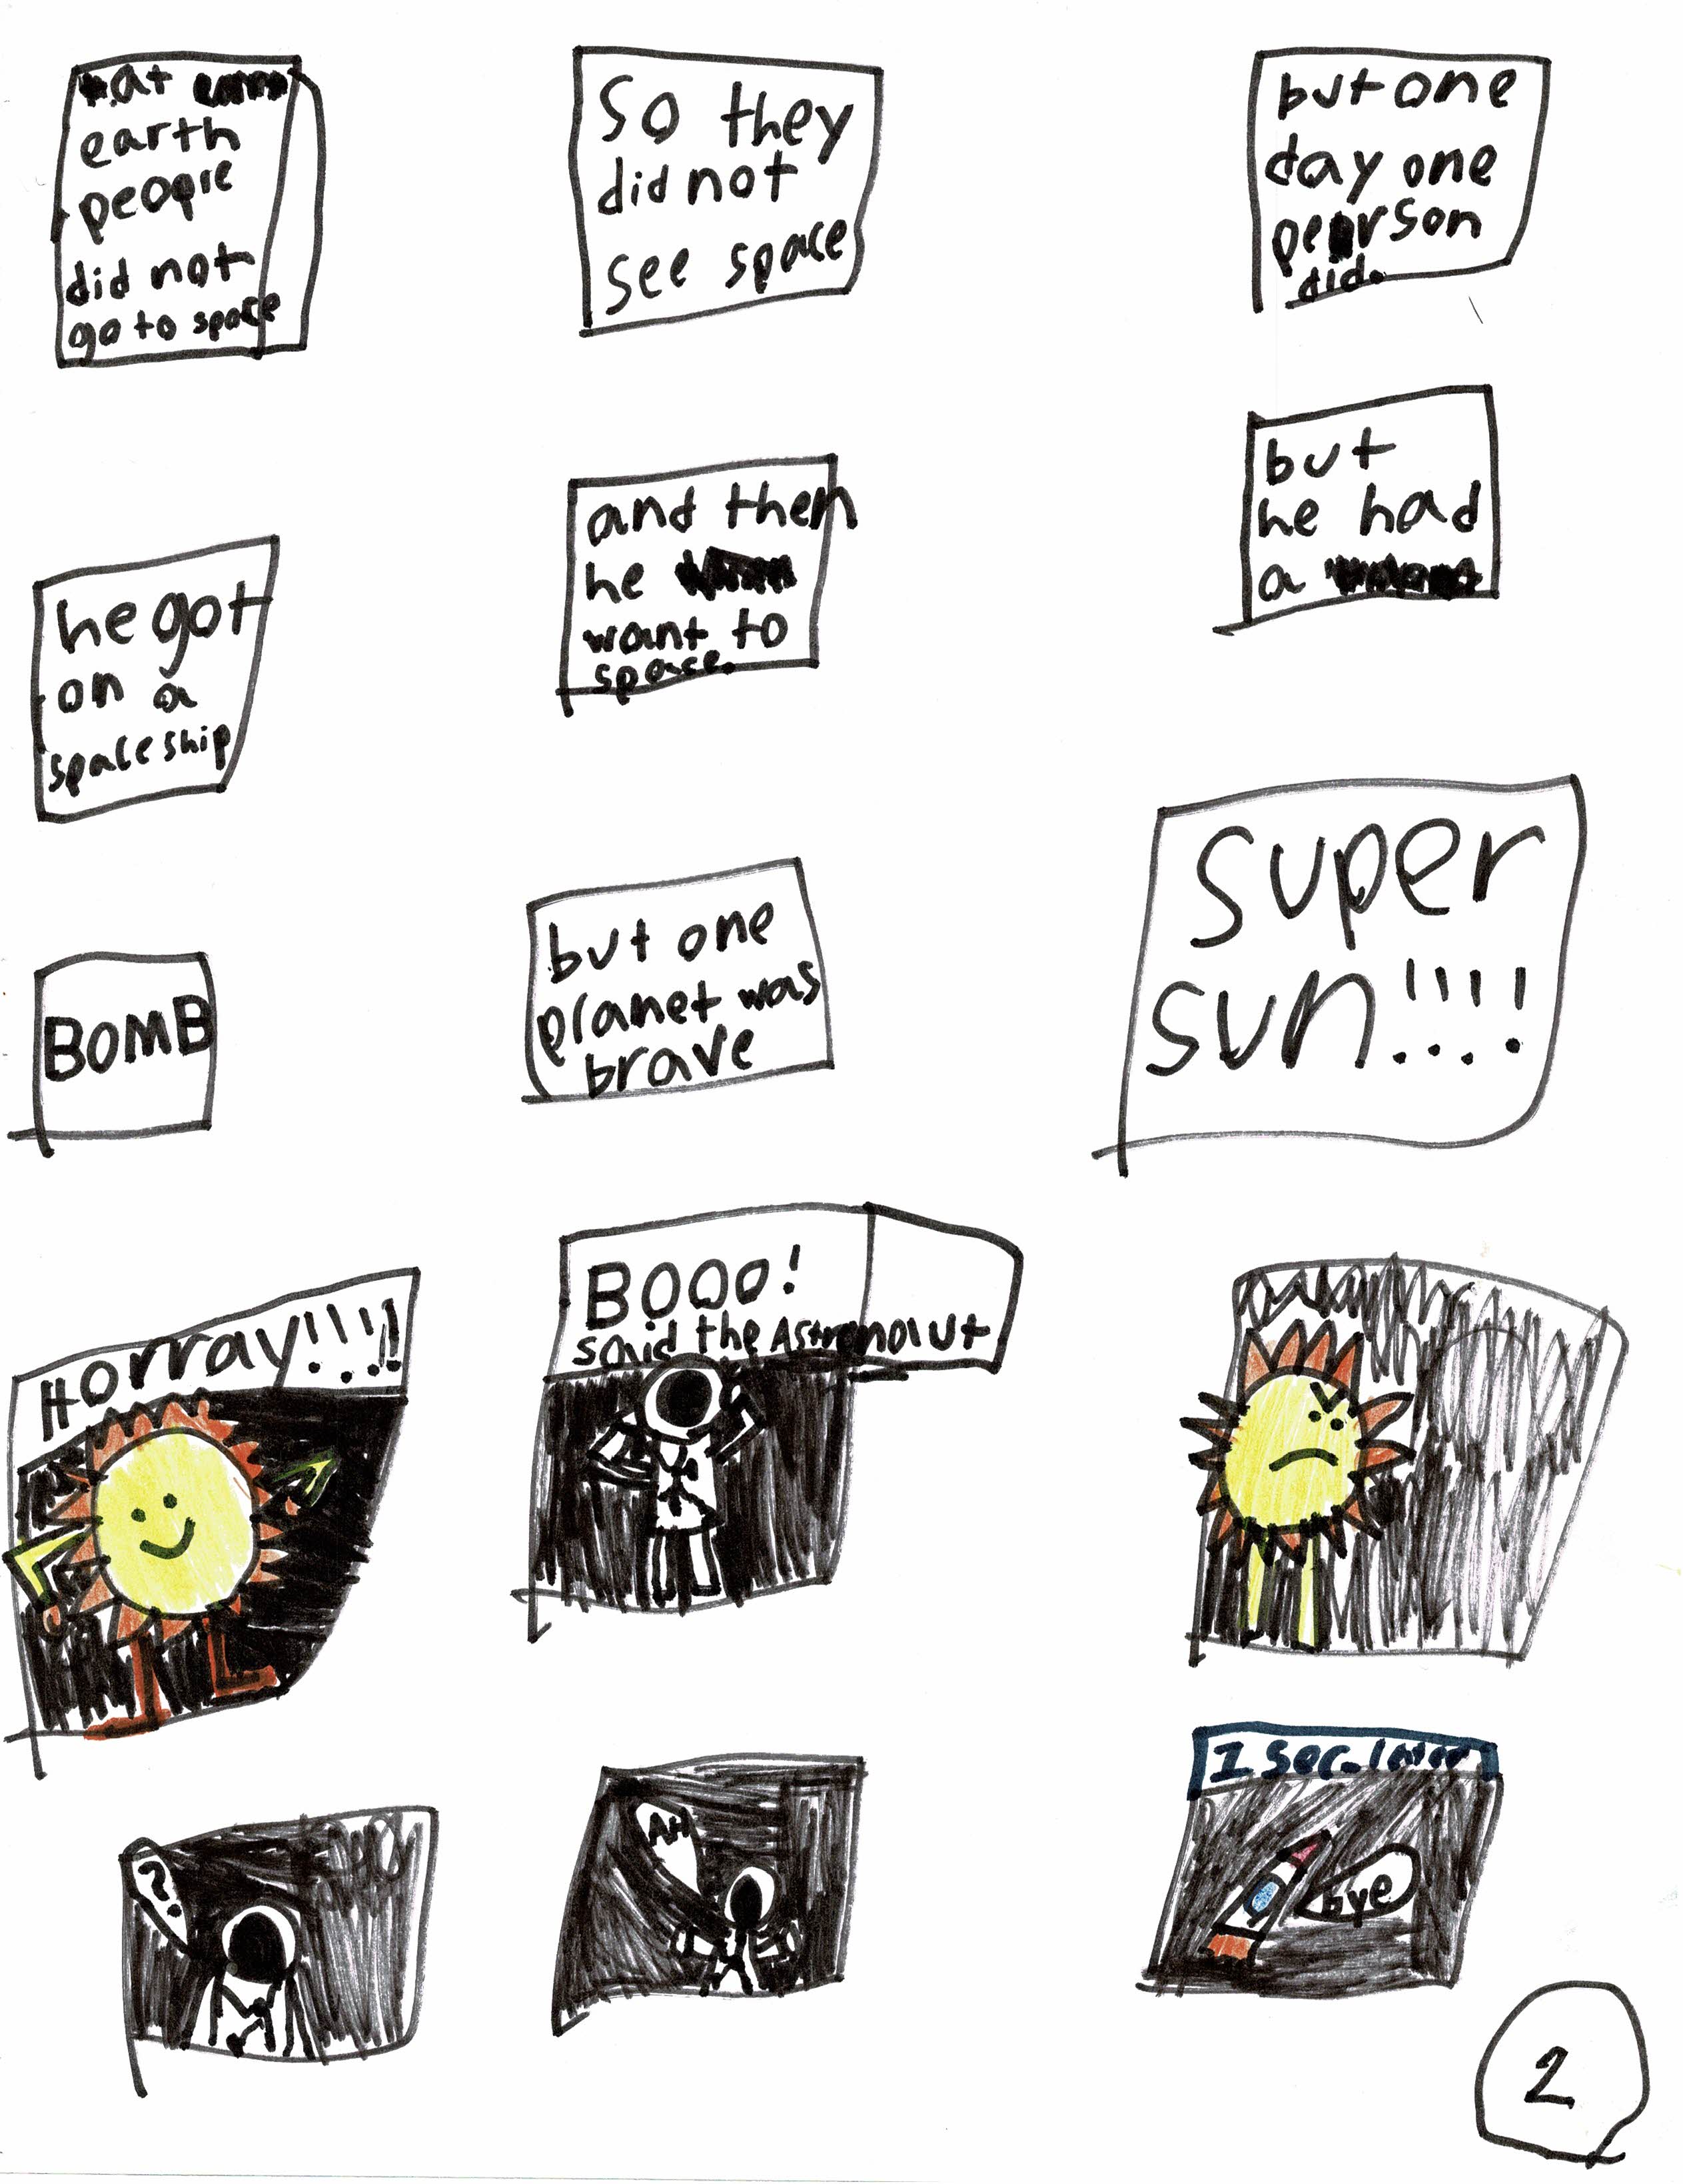 at
earth
people
did not
go to space
So they
did not
see space
but one
day one
person
did.
he got
on a
spaceship
and then
he
want to
space.
but
he had
a
BOMB
but one
planet was
brave
super
sun!!!!
Horray!!!!
BOOO!
said the Astronaut
?
AH
1 sec. later
bye
2